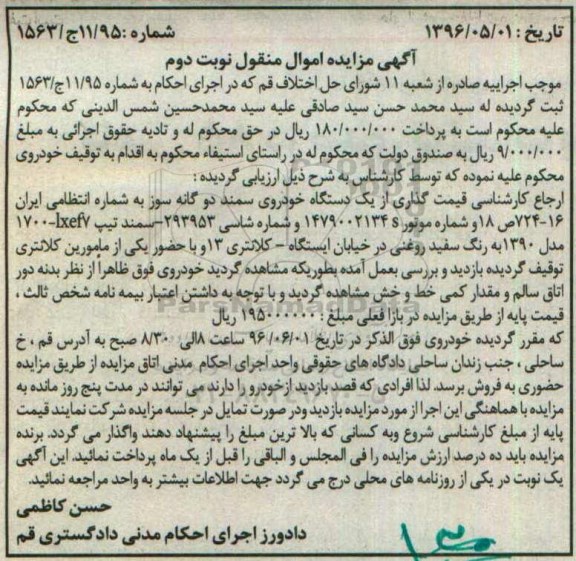 تاریخ : ۱۳۹۶/۰۵/۰۱ شماره :۱۱/۹۵ج/۱۵۶۳
آگهی مزایده اموال منقول نوبت دوم
موجب اجراییه صادره از شعبه ۱۱ شورای حل اختلاف قم که در اجرای احکام به شماره ۱۱/۹۵ج/۱۵۶۳
ثبت گردیده له سید محمد حسن سید صادقی علیه سید محمدحسین شمس الدینی که محکوم
علیه محکوم است به پرداخت ۱۸۰/۰۰۰/۰۰۰ ریال در حق محکوم له و تادیه حقوق اجرائی به مبلغ
۹/۰۰۰/۰۰۰ ریال به صندوق دولت که محکوم له در راستای استیفاء محکوم به اقدام به توقیف خودروی
محکوم علیه نموده که توسط کارشناس به شرح ذیل ارزیابی گردیده :
ارجاع کارشناسی قیمت گذاری از یک دستگاه خودروی سمند دو گانه سوز به شماره انتظامی ایران
۱۶-۷۲۴ص۱۸ و شماره موتور ۱۴۷۹۰۰۲۱۳۴s و شماره شاسی ۲۹۳۹۵۳-سمند تیپ lxef۷-۱۷۰۰
مدل ۱۳۹۰به رنگ سفید روغنی در خیابان ایستگاه - کلانتری ۱۳و با حضور یکی از مامورین کلانتری
توقیف گردیده بازدید و بررسی بعمل آمده بطوریکه مشاهده گردید خودروی فوق ظاهراً از نظر بدنه دور
اتاق سالم و مقدار کمی خط و خش مشاهده گردید و با توجه به داشتن اعتبار بیمه نامه شخص ثالث ،
قیمت پایه از طریق مزایده در بازا فعلی مبلغ : ۱۹۵۰۰۰۰۰۰ ریال
که مقرر گردیده خودروی فوق الذکر در تاریخ ۹۶/۰۶/۰۱ ساعت ۸الی ۸/۳۰ صبح به آدرس قم ، خ
ساحلی ، جنب زندان ساحلی دادگاه های حقوقی واحد اجرای احکام مدنی اتاق مزایده از طریق مزایده
حضوری به فروش برسد. لذا افرادی که قصد بازدید ازخودرو را دارند می توانند در مدت پنج روز مانده به
مزایده با هماهنگی این اجرا از مورد مزایده بازدید ودر صورت تمایل در جلسه مزایده شرکت نمایند قیمت
پایه از مبلغ کارشناسی شروع وبه کسانی که بالا ترین مبلغ را پیشنهاد دهند واگذار می گردد. برنده
مزایده باید ده درصد ارزش مزایده را فی المجلس و الباقی را قبل از یک ماه پرداخت نمائید. این آگهی
یک نوبت در یکی از روزنامه های محلی درج می گردد جهت اطلاعات بیشتر به واحد مراجعه نمائید.
حسن کاظمی
دادورز اجرای احکام مدنی دادگستری قم